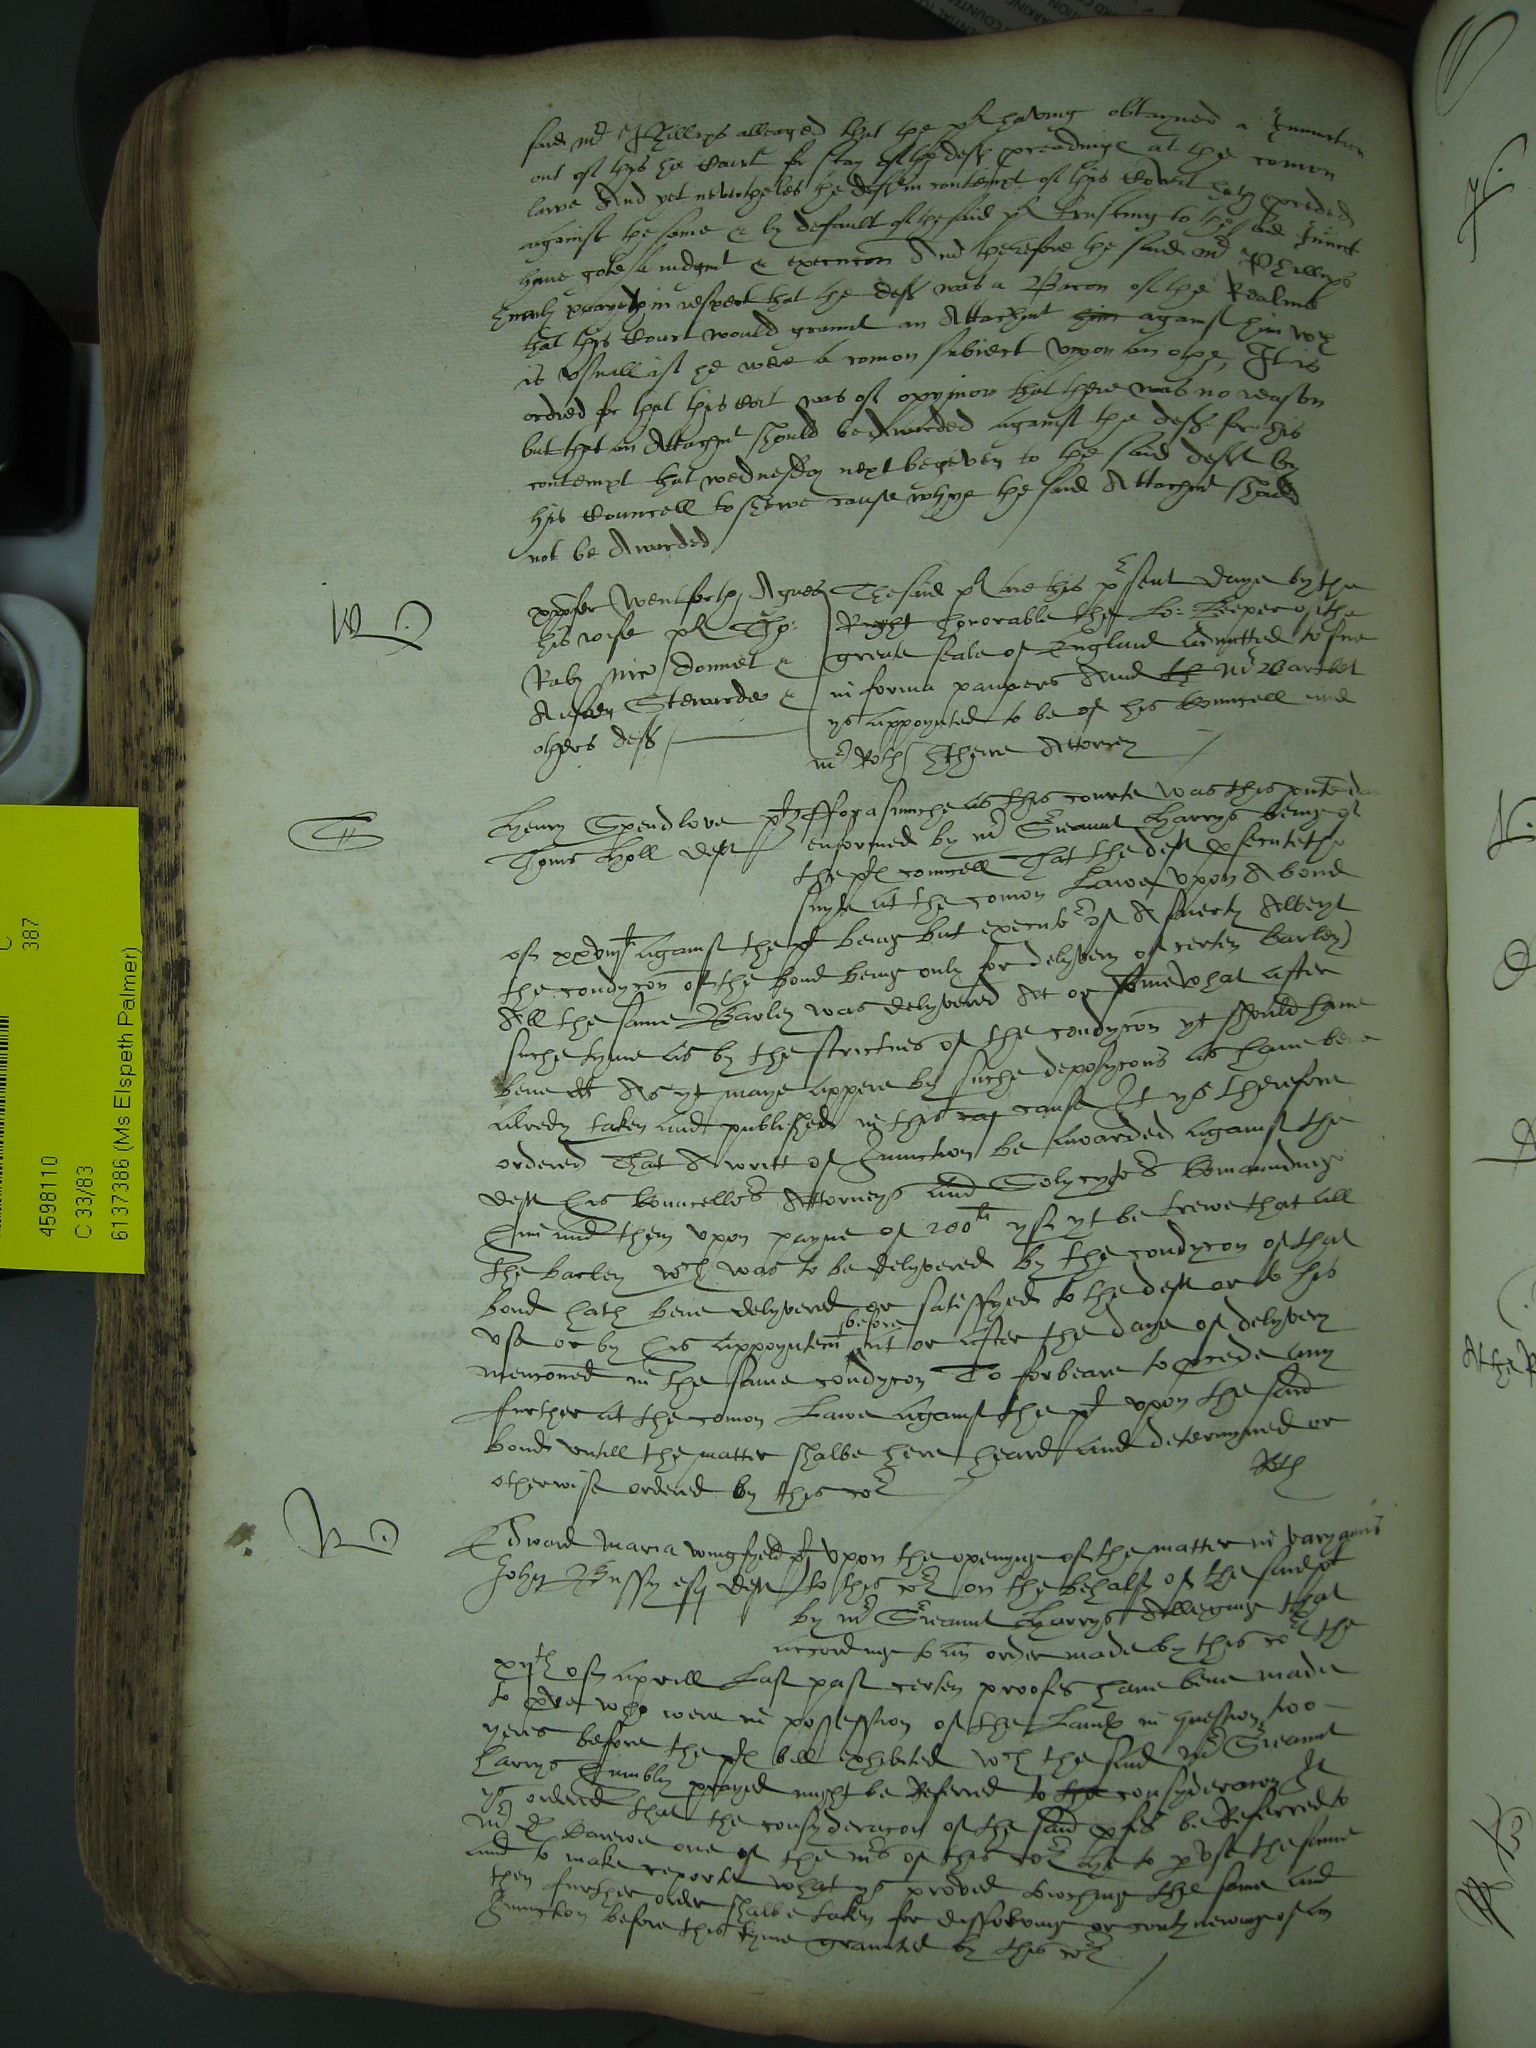 said mr Phillips alleaged that the pl having obtayned a Iniunction
out of this her Court for stay of the deff proceadinge at the comon
lawe And yet nevertheles the deff in contempt of this Court hath proceded
against the same & by default of the said pl trusting to the said Iniunct
have gote a iudgmt & execucon And therefore the said mr Phillips
humbly prayed in respect that the deff was a Baron of the Realme
that this Court would graunt an Attachmt him against him wch
is usuall if he were a comon subiect upon an othe, It is
ordred for that this Cort was of opynion that there was no reason
but that an Attachmt should be Awarded against the deff for his
contempt that wednesday next be geven to the said deff by
his Councell to shewe cause whye the said Attachmt should
not be Awarded
xpofer Wentforth, Agnes
his wife pl Tho:
Raby Donnet &
Stewarde &
others deff
The said pl are this present daye by the
Right honorable the Lo: Keeper of the
greate seale of England admitted to sue
in forma pauperis And th mr Bartlet
ys appoynted to be of his Councell and
mr Roth there Attorney
Henry Spendlove pl
Thoms Holl deft
fforasmuche as this courte was this pnte da
enformed by mr Sreaunt Harrys being of
the pl councell That the deft prosecuteth
suyte at the comon Lawe upon A bond
of against the pl being but executor of A suerty Albeyt
the condycon of the bond being only for delyvery of certen barley
All the same Barley was delyvered At or somewhat after
suche tyme as by the strictnes of the condycon yt should have
bene As yt maye appere by suche deposycons as have bene
alredy taken and published in this cause It ys therefore
ordered That A writt of Iniunction be awarded against the
deft his councellors Attorneys and Solycytors Comaundinge
him and them upon payne of 200li yf yt be trewe that all
the barley wch was to be delyvered by the condycon of that
bond hath bene delyvered or satisffyed to the deft or to his
use or by his appoyntemt before at or after the daye of delyvery
mencioned in the same condycon To forbeare to procede any
further at the comon Lawe against the pl upon the said
bond untill the matter shalbe here heard and determyned or
otherwise ordered by this cort
Rth
Edward Maria Wingfyeld pl
John Bussy esq deft
upon the openyng of the matter in varyaunce
to this cort on the behalf of the said pl
by mr Sreaunt Harrys Alleging that
according to an order made by this cort the
xvijth of Aprill Last past certen proofes have bene made
to prove who were in possession of the Lands in question two
yeres before the pl bill exhibited wch the said mr Sreaunt
Harrys humbly prayed might be Referred to the consyderacon It
ys ordered that the consyderacon of the said proofes be Referred to
mr D Carewe one of the mrs of this cort he to pvse the same
and to make reporte what ys proved towching the same and
then further order shalbe taken for dissolving or contynewing of an
Iniunction before this tyme graunted by this cort
4598110
C 33/83
6137386 (Ms Elspeth Palmer)
C
387